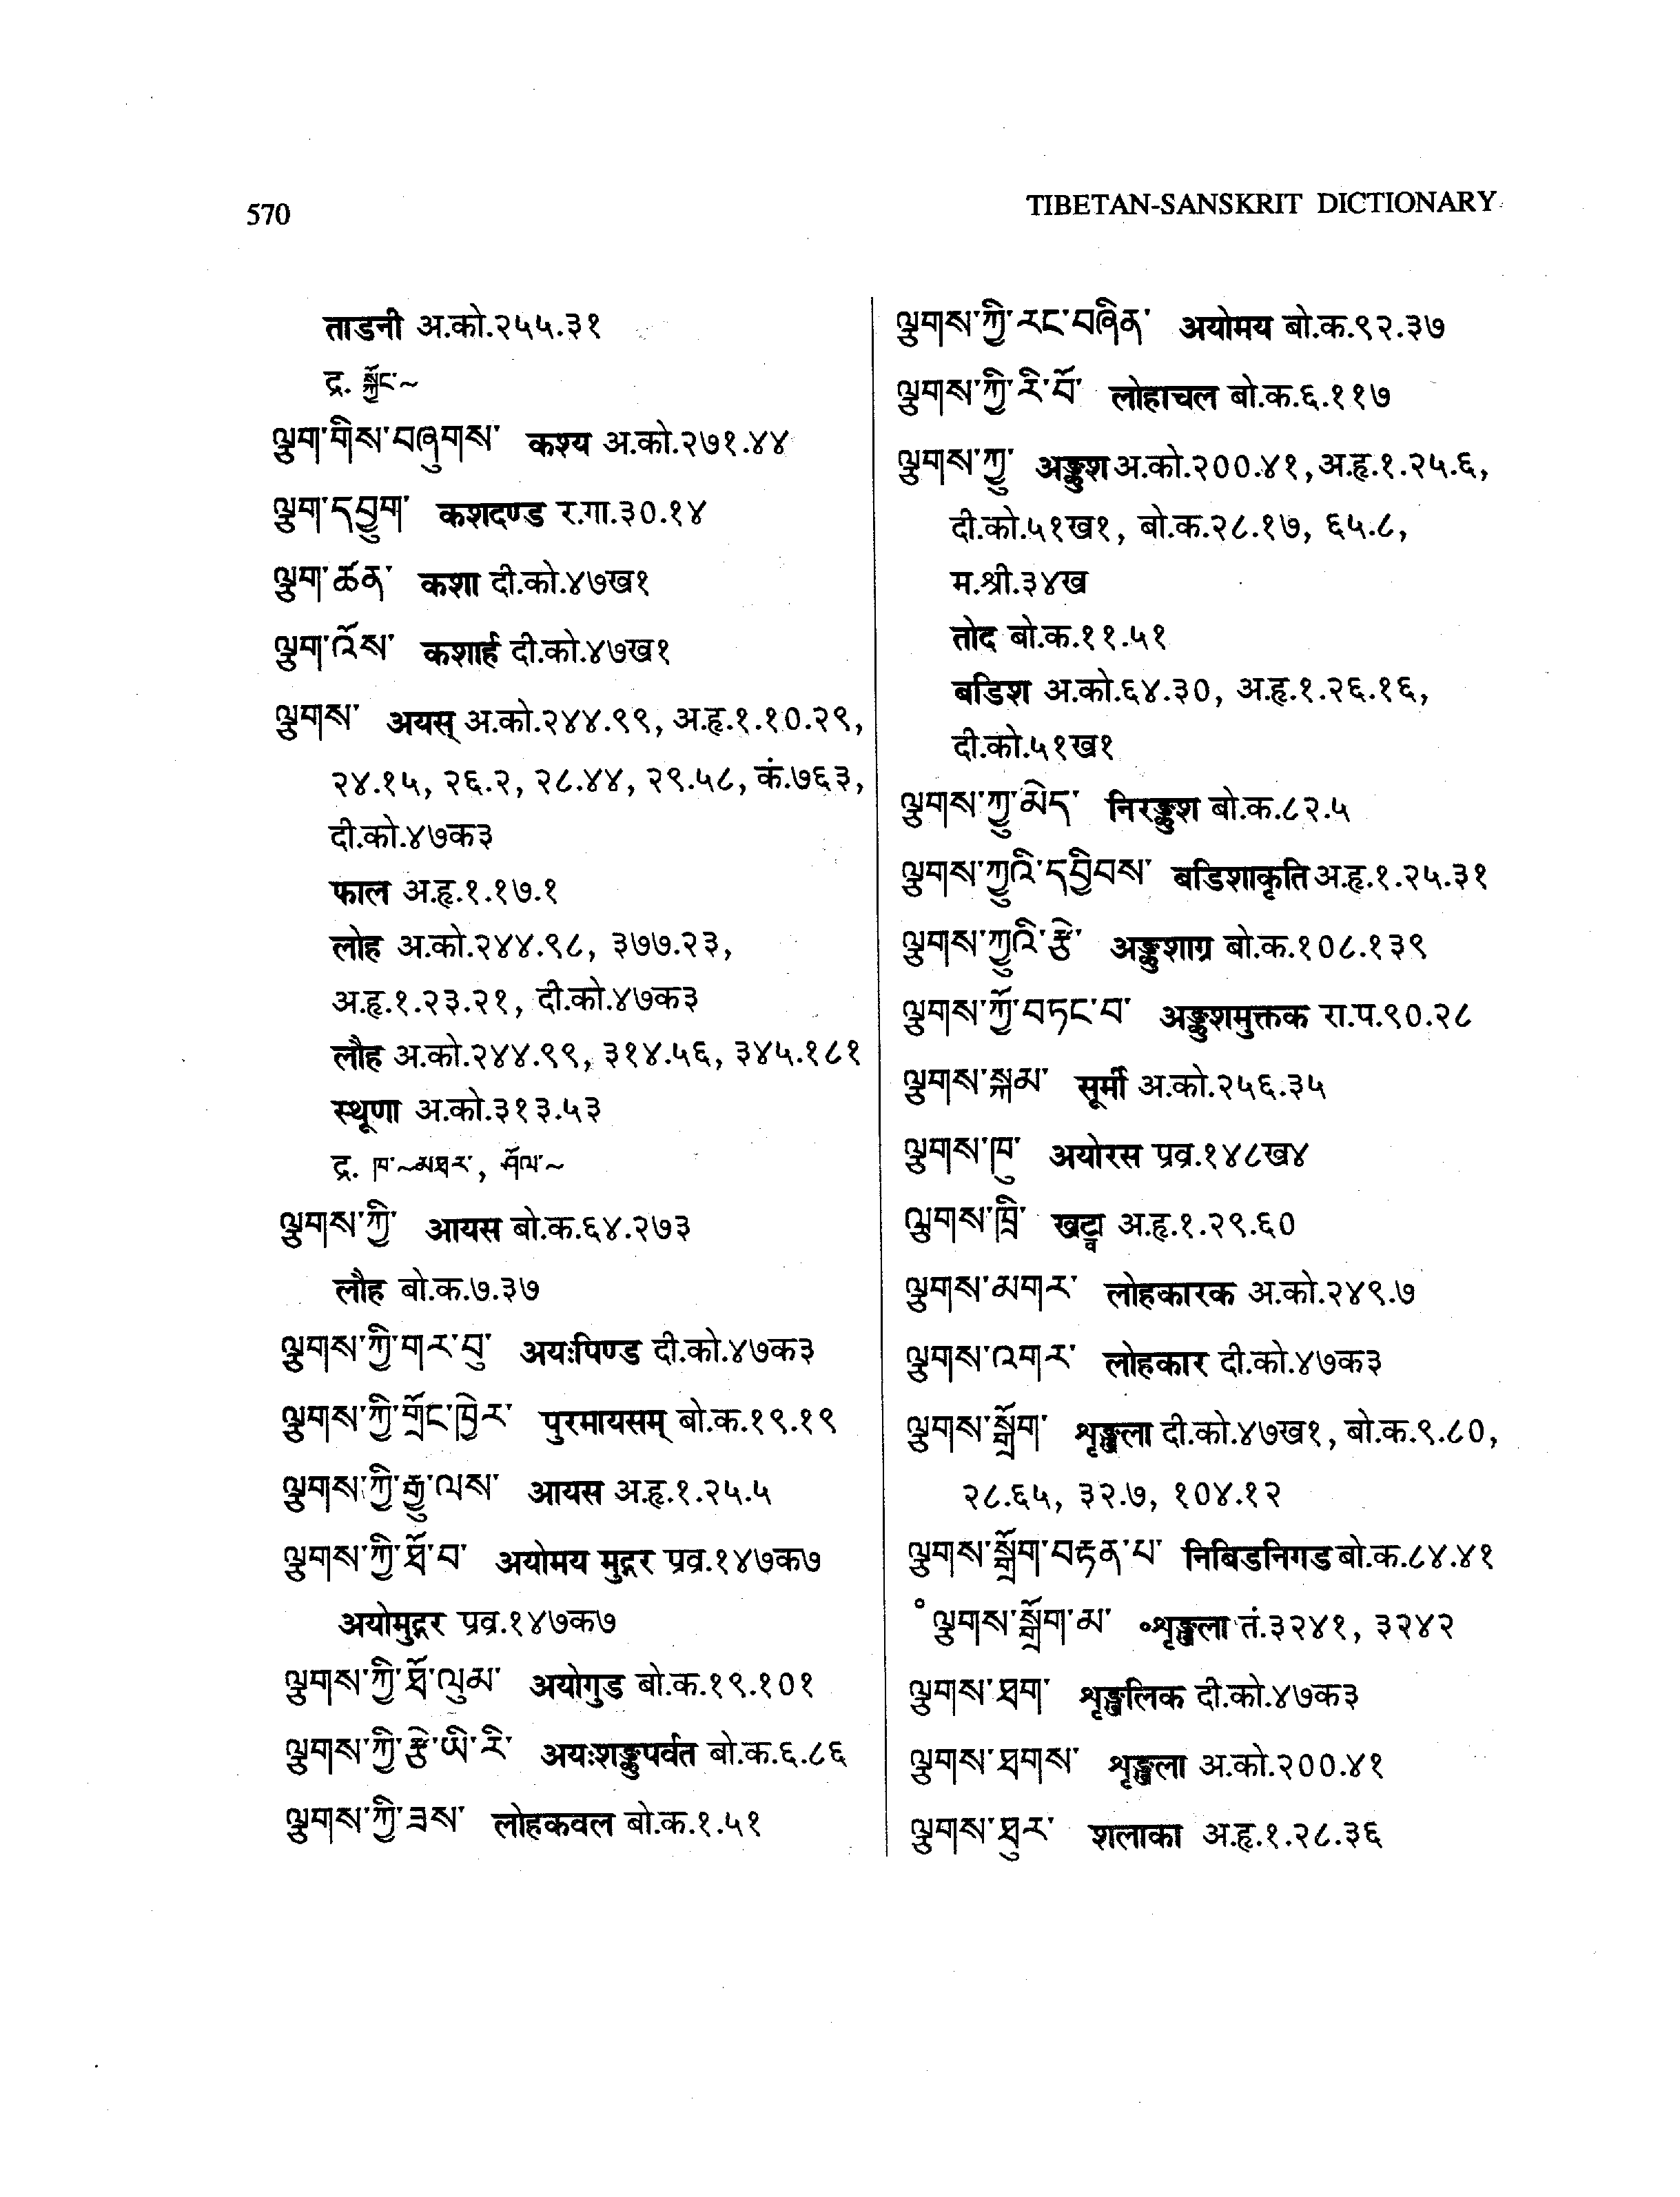 570
TIBETAN-SANSKRIT DICTIONARY
ताडनी अ.को.२५५.३१
द्र. སྐྱོང་~
ལྕུག་གིས་བཞུགས་ कश्य अ.को.२७१.४४
ལྕུག་དབྱུག་ कशदण्ड र.गा.३०.१४
ལྕུག་ཚན་ कशा दी.को.४७ख१
ལྕུག་འོས་ कशार्ह दी.को.४७ख१
ལྕུགས་ अयस् अ.को.२४४.९९, अ.हृ.१.१०.२९,
२४.१५, २६.२, २८.४४, २९.५८, कं.७६३,
दी.को.४७क३
फाल अ.हृ.१.१७.१
लोह अ.को.२४४.९८, ३७७.२३,
अ.हृ.१.२३.२१, दी.को.४७क३
लौह अ.को.२४४.९९, ३१४.५६, ३४५.१८१
स्थूणा अ.को.३१३.५३
द्र. ཁ་~མཐར་, ཤོལ་~
ལྕུགས་ཀྱི་ आयस बो.क.६४.२७३
लौह बो.क.७.३७
ལྕུགས་ཀྱི་གར་བུ་ अयःपिण्ड दी.को.४७क३
ལྕུགས་ཀྱི་གྲོང་ཁྱེར་ पुरमायसम् बो.क.१९.१९
ལྕུགས་ཀྱི་རྒྱུ་ལས་ आयस अ.हृ.१.२५.५
ལྕུགས་ཀྱི་ཐོ་བ་ अयोमय मुद्गर प्रव्र.१४७क७
अयोमुद्गर प्रव्र.१४७क७
ལྕུགས་ཀྱི་ཐོ་ལུམ་ अयोगुड बो.क.१९.१०१
ལྕུགས་ཀྱི་རྩེ་ཡི་རི་ अयःशङ्कुपर्वत बो.क.६.८६
ལྕུགས་ཀྱི་ཟས་ लोहकवल बो.क.१.५१
ལྕུགས་ཀྱི་རང་བཞིན་ अयोमय बो.क.९२.३७
ལྕུགས་ཀྱི་རི་བོ་ लोहाचल बो.क.६.११७
ལྕུགས་ཀྱུ་ अङ्कुश अ.को.२००.४१, अ.हृ.१.२५.६,
दी.को.५१ख१, बो.क.२८.१७, ६५.८,
म.श्री.३४ख
तोद बो.क.११.५१
बडिश अ.को.६४.३०, अ.हृ.१.२६.१६,
दी.को.५१ख१
ལྕུགས་ཀྱུ་མེད་ निरङ्कुश बो.क.८२.५
ལྕུགས་ཀྱུའི་དབྱིབས་ बडिशाकृति अ.हृ.१.२५.३१
ལྕུགས་ཀྱུའི་རྩེ་ अङ्कुशाग्र बो.क.१०८.१३९
ལྕུགས་ཀྱོ་བཏང་བ་ अङ्कुशमुक्तक रा.प.९०.२८
ལྕུགས་སྐམ་ सूर्मी अ.को.२५६.३५
ལྕུགས་ཁུ་ अयोरस प्रव्र.१४८ख४
ལྕུགས་ཁྲི་ खट्वा अ.हृ.१.२९.६०
ལྕུགས་མགར་ लोहकारक अ.को.२४९.७
ལྕུགས་འགར་ लोहकार दी.को.४७क३
ལྕུགས་སྒྲོག་ शृङ्खला दी.को.४७ख१, बो.क.९.८०,
२८.६५, ३२.७, १०४.१२
ལྕུགས་སྒྲོག་བརྟན་པ་ निबिडनिगड बो.क.८४.४१
॰ལྕུགས་སྒྲོག་མ་ ॰शृङ्खला तं.३२४१, ३२४२
ལྕུགས་ཐག་ शृङ्खलिक दी.को.४७क३
ལྕུགས་ཐགས་ शृङ्खला अ.को.२००.४१
ལྕུགས་ཐུར་ शलाका अ.हृ.१.२८.३६